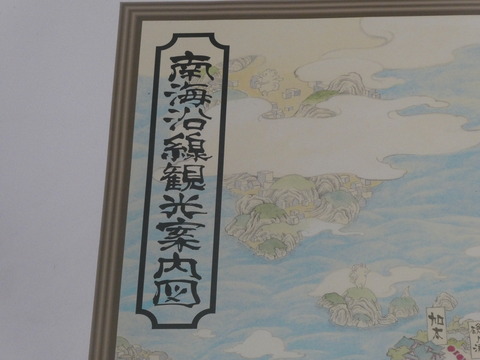 南海沿線観光案内図
加太